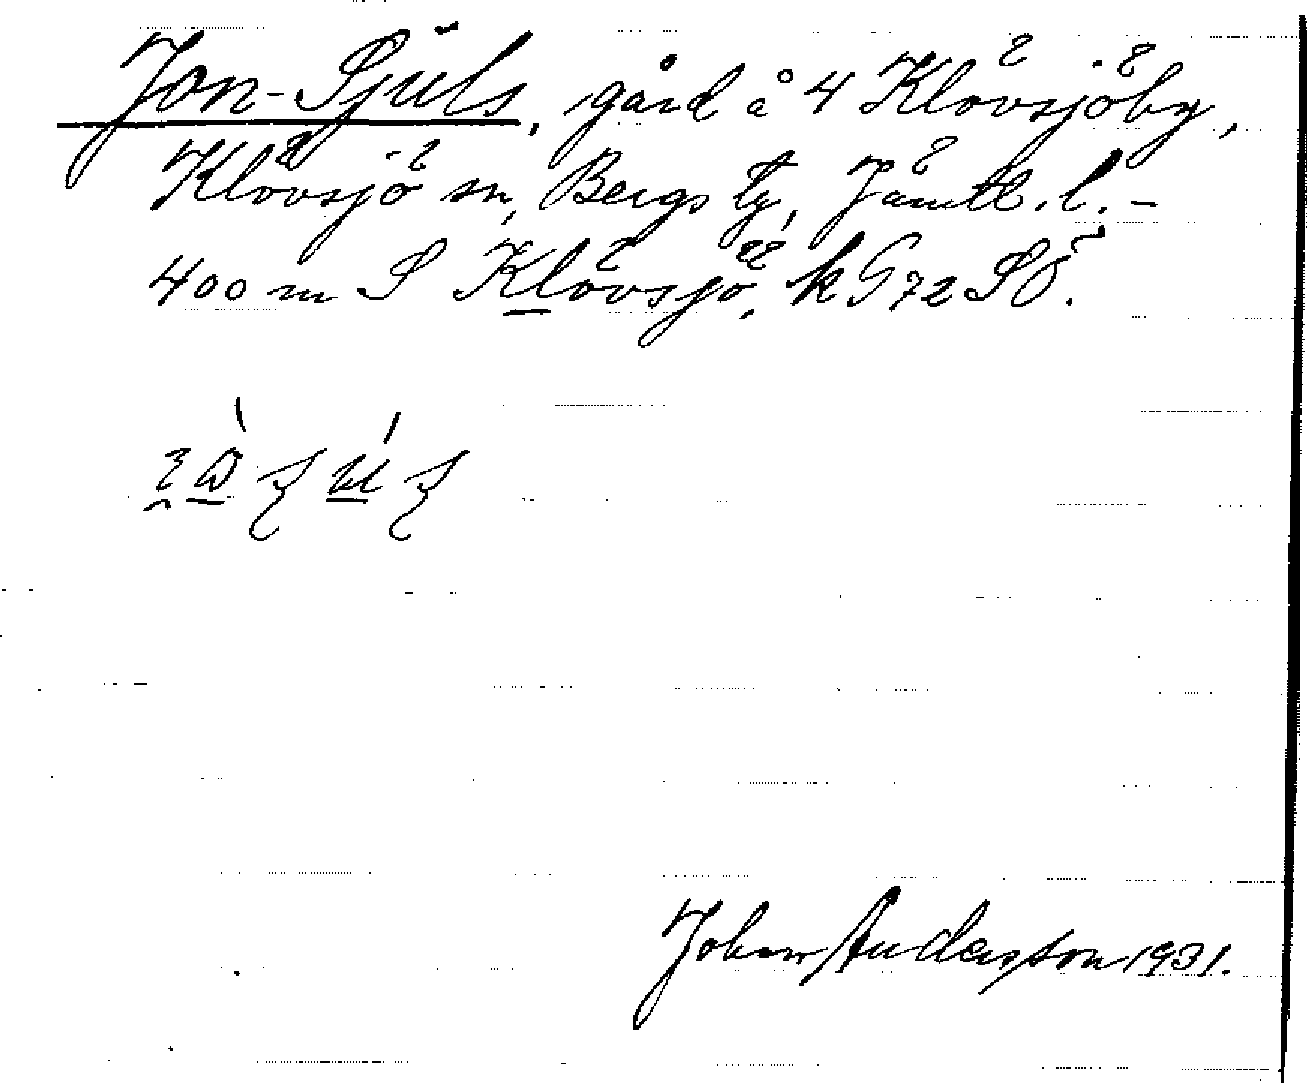 Jon-Sjuls, gård å 4 Klövsjöby,
Klövsjö sn, Bergs tg, Jämtl. l. -
400 m S Klövsjö, k G 72 SÖ.
Johan Andersson 1931.